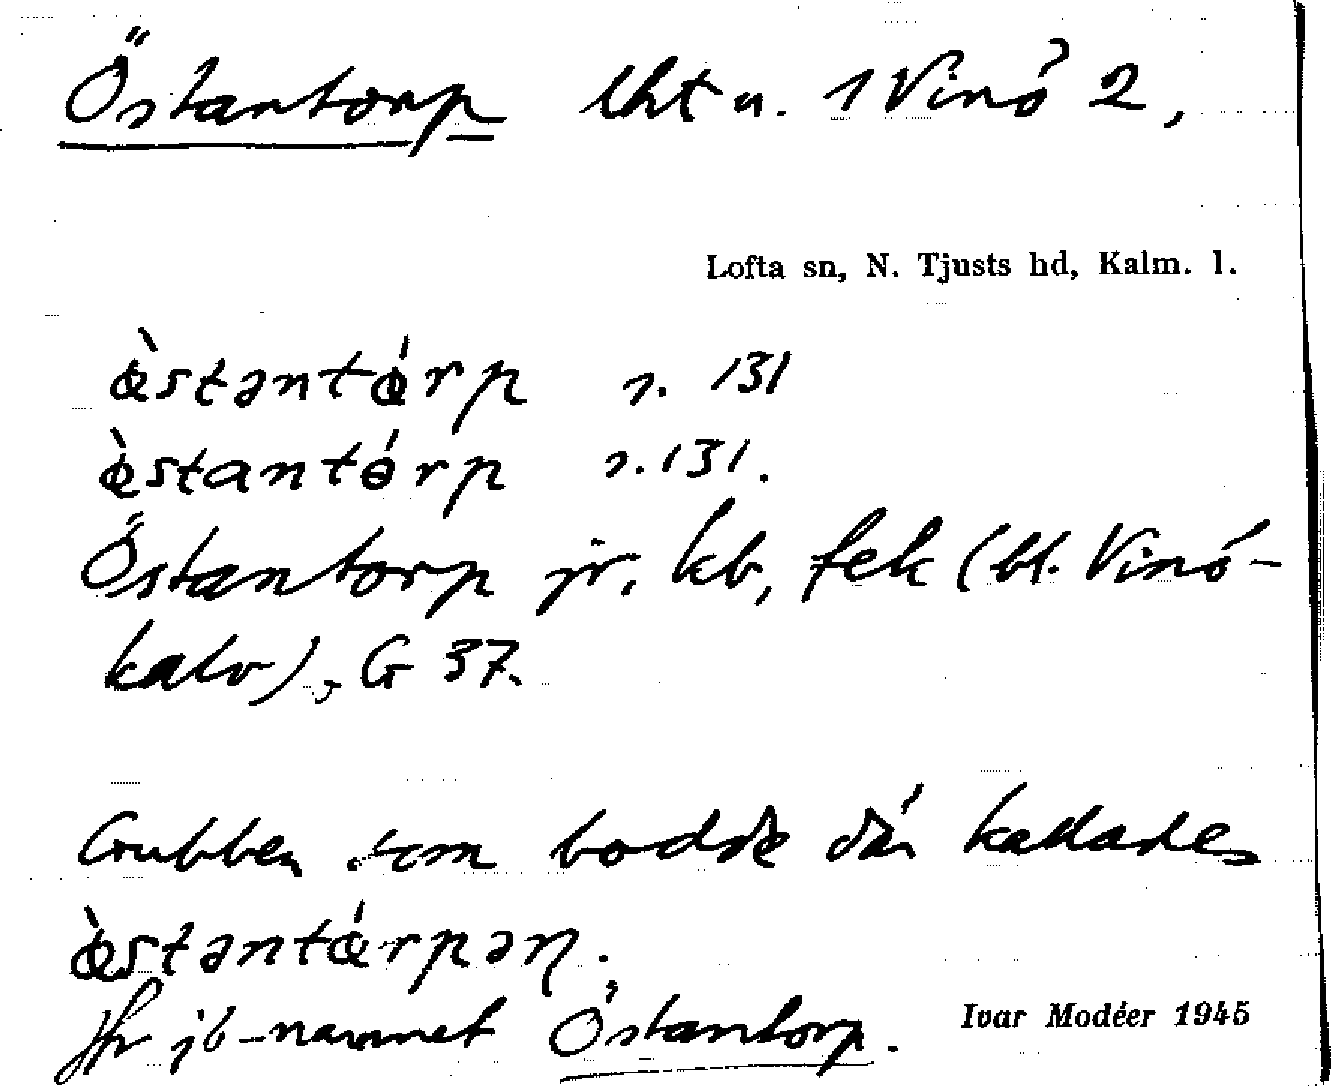 Östantorp lht u. 1 Vinö 2,
Lofta sn, N. Tjusts hd, Kalm. l.
ö̀stəntórp s. 131
ö̀stantórp s. 131.
Östantorp jr, kb, fek (bl. Vinö-
kalv), G 37.
Gubben som bodde där kallades
ö̀stəntórpən.
Jfr jb-namnet Östantorp.
Ivar Modéer 1945